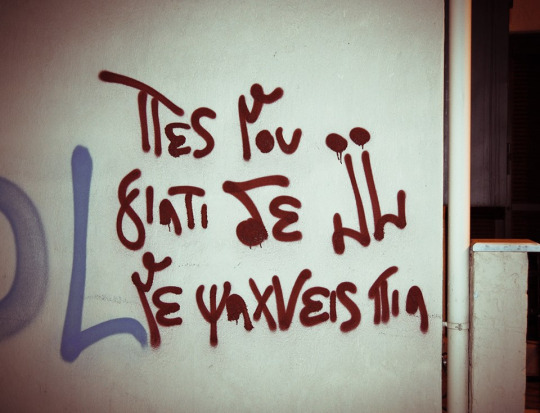 πες μου
γιατι δε
με ψαχνεις πια